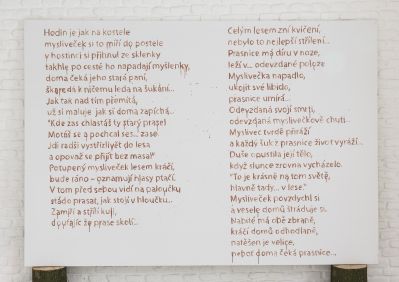 Hodin je jak na kostele
mysliveček si to míří do postele
v hostinci si přihnul ze sklenky
takhle po cestě ho napadají myšlenky,
doma čeká jeho stará paní,
škaredá k ničemu leda na šukání...
Jak tak nad tím přemítá,
už si maluje, jak si doma zapíchá...
"Kde zas chlastáš ty starý prase!
Motáš se a pochcal ses... zase.
Jdi radši vystřízlivět do lesa
a opovaž se přijít bez masa!"
Potupený mysliveček lesem kráčí,
bude ráno - oznamují hlasy ptačí.
V tom před sebou vidí na paloučku
stádo prasat, jak stojí v hloučku...
Zamíří a střílí kulí,
doufajíc že prase skolí...
Celým lesem zní kvičení,
nebylo to nejlepší střílení...
Prasnice má díru v noze,
leží v... odevzdané poloze
Myslivečka napadlo,
ukojit své libido,
prasnice umírá...
Odevzdaná svojí smrti,
odevzdaná myslivečkově chuti...
Myslivec tvrdě přiráží
a každý šuk z prasnice život vyráží...
Duše opustila její tělo,
když slunce zrovna vycházelo.
"To je krásně na tom světě,
hlavně tady... v lese."
Mysliveček povzdychl si
a vesele domů štráduje si.
Nabité má obě zbraně,
kráčí domů odhodlaně,
natěšen je velice,
neboť doma čeká prasnice...